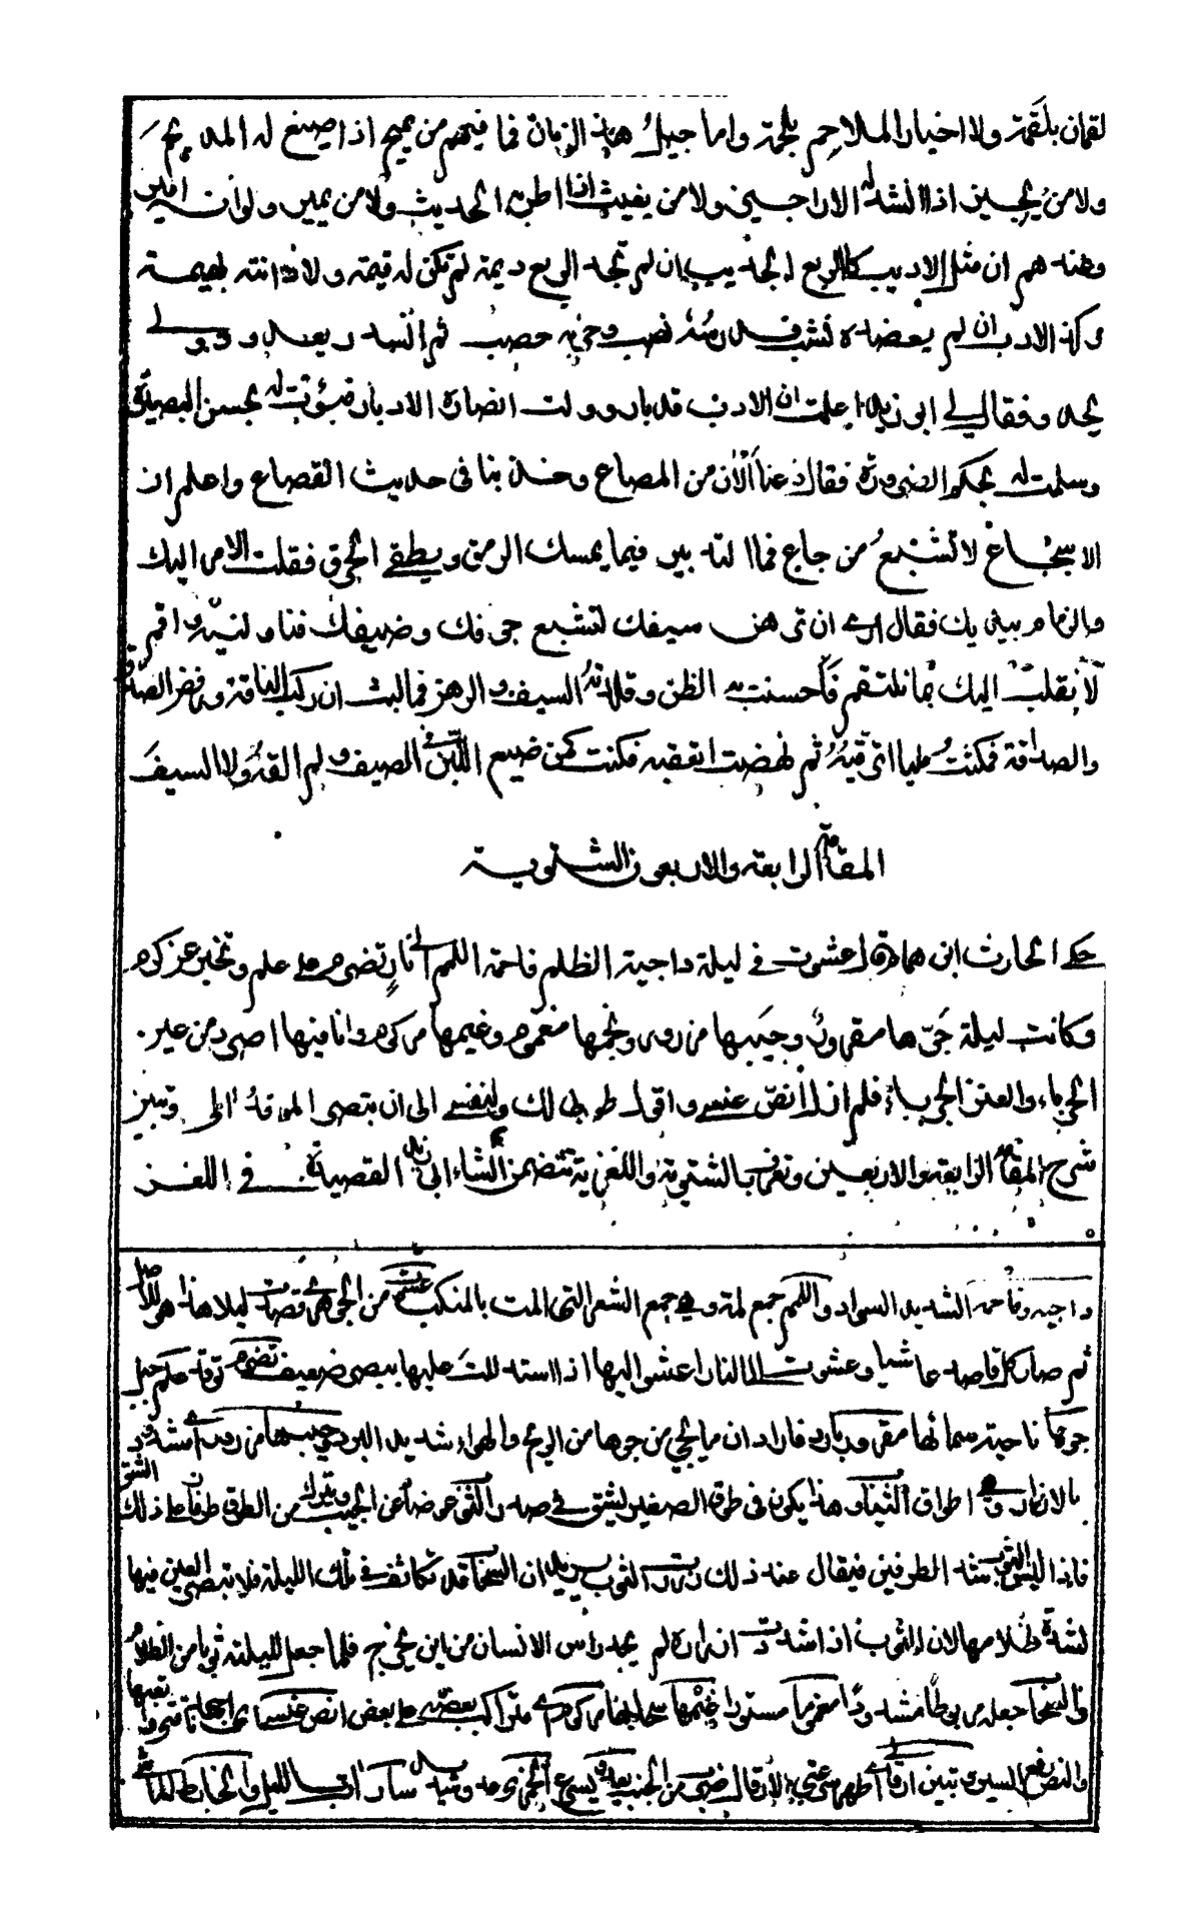 لقمان بلقمة ولا اخبار الملاحم بلحمة واما جيل هذا الزمان فما فيهم من يميح اذا صيغ له المديح
ولا من يجيز اذا انشد له الاراجيز ولا من يغيث اذا اطربه الحديث ولا من يمير ولو انه امير
وعندهم ان مثل الاديب كالربع الجديب ان لم تجد الربع ديمة لم تكن له قيمة ولا دانته بهيمة
وكذا الادب ان لم يعضده نشب فدرسه نصب وحزبه حصب ثم انسدر يعدو وولى
يحدو فقال لي ابو زيد اعلمت ان الادب قد بار وولت انصاره الادبار فبؤت له بحسن البصيرة
وسلمت له بحكم الضرورة فقال دعنا الآن من المصاع وخذ بنا في حديث القصاع واعلم ان
الاسجاع لا تشبع من جاع فما التدبير فيما يمسك الرمق ويطفى الحرق فقلت الامر اليك
والزمام بيديك فقال ارى ان ترهن سيفك لتشبع جوفك وضيفك فناولنيه واقم
لانقلب اليك بما تلتقم فاحسنت به الظن وقلدته السيف والرهن فما لبث ان ركب الناقة ورفض الصدق
والصداقة فمكثت مليا اترقبه ثم نهضت اتعقبه فكنت كمن ضيع اللبن في الصيف ولم القه ولا السيف
المقامة الرابعة والاربعون الشتوية
حكى الحارث ابن همام قال عشوت في ليلة داجية الظلم فاحمة اللمم الى نار تضرم على علم وتخبر عن كرم
وكانت ليلة جوها مقرور وجيبها مزرور ونجمها مغموم وغيمها مركوم وانا فيها اصرد من عين
الحرباء والعنز الجرباء فلم ازل انص عنسي واقول طوبى لك ولنفسي الى ان تبصر الموقد الى وتبين
شرح المقامة الرابعة والاربعين وتعرف بالشتوية واللغزية تتضمن انشاء ابى زيد القصيدة في اللغز
داجية وفاحمة الشديد السواد واللمم جمع لمة وهي جمع الشعر التى المت بالمنكب عشوت من الجوهرى قصدت ليلا هذا هو الاصل
ثم صار كل قاصد عاشيا وعشوت الى النار اعشو اليها اذا استدللت عليها ببصر ضعيف تضرم توقد علم جبل
جوها ناحية سمائها مقرور بارد فاراد ان ما يجي من جوها من الريح والهواء شديد البرد جيبها مزرور اى مشدود
بالازرار وهي اطواق الثياب وهذا يكون في طرق الصغير ليشق في صدر الثوب عوضا عن الجيب ويترك من الطرق طرفا على ذلك الشق
فاذا لبس الثوب شد الطرفين فيقال عند ذلك زررت الثوب يريد ان السحاب قد تكاثف في تلك الليلة فلا تبصر العين فيها
لشدة ظلامها لان الثوب اذا شددت ازراره لم يجد راس الانسان من اين يخرج فلما جعل لليلة ثوبا من الظلام
والسحاب جعله مربوطا مشدودا مغموما مستورا غيمها سحابها مركوم اى متراكب بعضه على بعض انص عنسى
والنص رفع السير تبين ارقالى